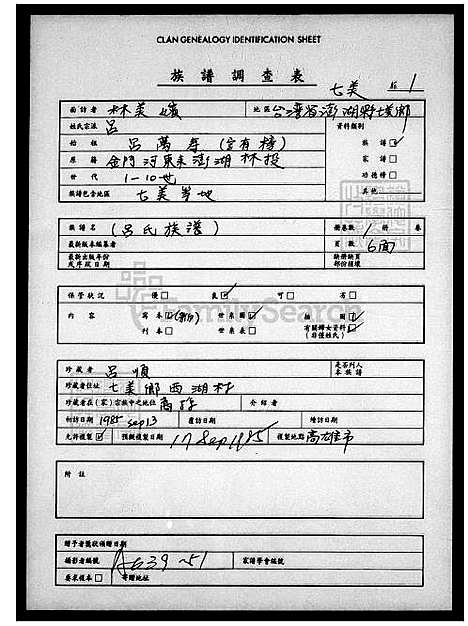 CLAN GENEALOGY IDENTIFICATION SHEET
族譜調查表
七美 1
面訪者 林美 地區 台灣省澎湖縣七美鄉
姓氏宗派 呂 資料類別
始祖 呂萬 族譜☑
原籍 金門河東來澎湖林投 家譜□
世代 1-10世 功德榜□
族譜包含地區 七美等地 其他
族譜名 (呂氏族譜) 冊卷數 1 冊 卷
最新版本編纂者 頁數 6面
最新出版年份 缺冊缺頁
或序跋日期 部份損壞
保管狀況 優□ 良☑ 可□ 劣□
內容 寫本☑ 世系圖☑ 插圖☑
刊本□ 世系表□ 有關婦女資料☑
(非僅姓氏)
FamilySearch
珍藏者 呂順 是否列入
本族譜
珍藏者住址 七美鄉西湖村
珍藏者在(家)宗族中之地位 裔孫 介紹者
初訪日期 1985 sep 13 覆訪日期 續訪日期
允許複製☑ 預擬複製日期 17 Sep 1985 複製地點 高雄市
附註
贈予者獎狀頒贈日期
攝影者編號 A639~51 家譜學會編號
要求複本□ 寄贈地址